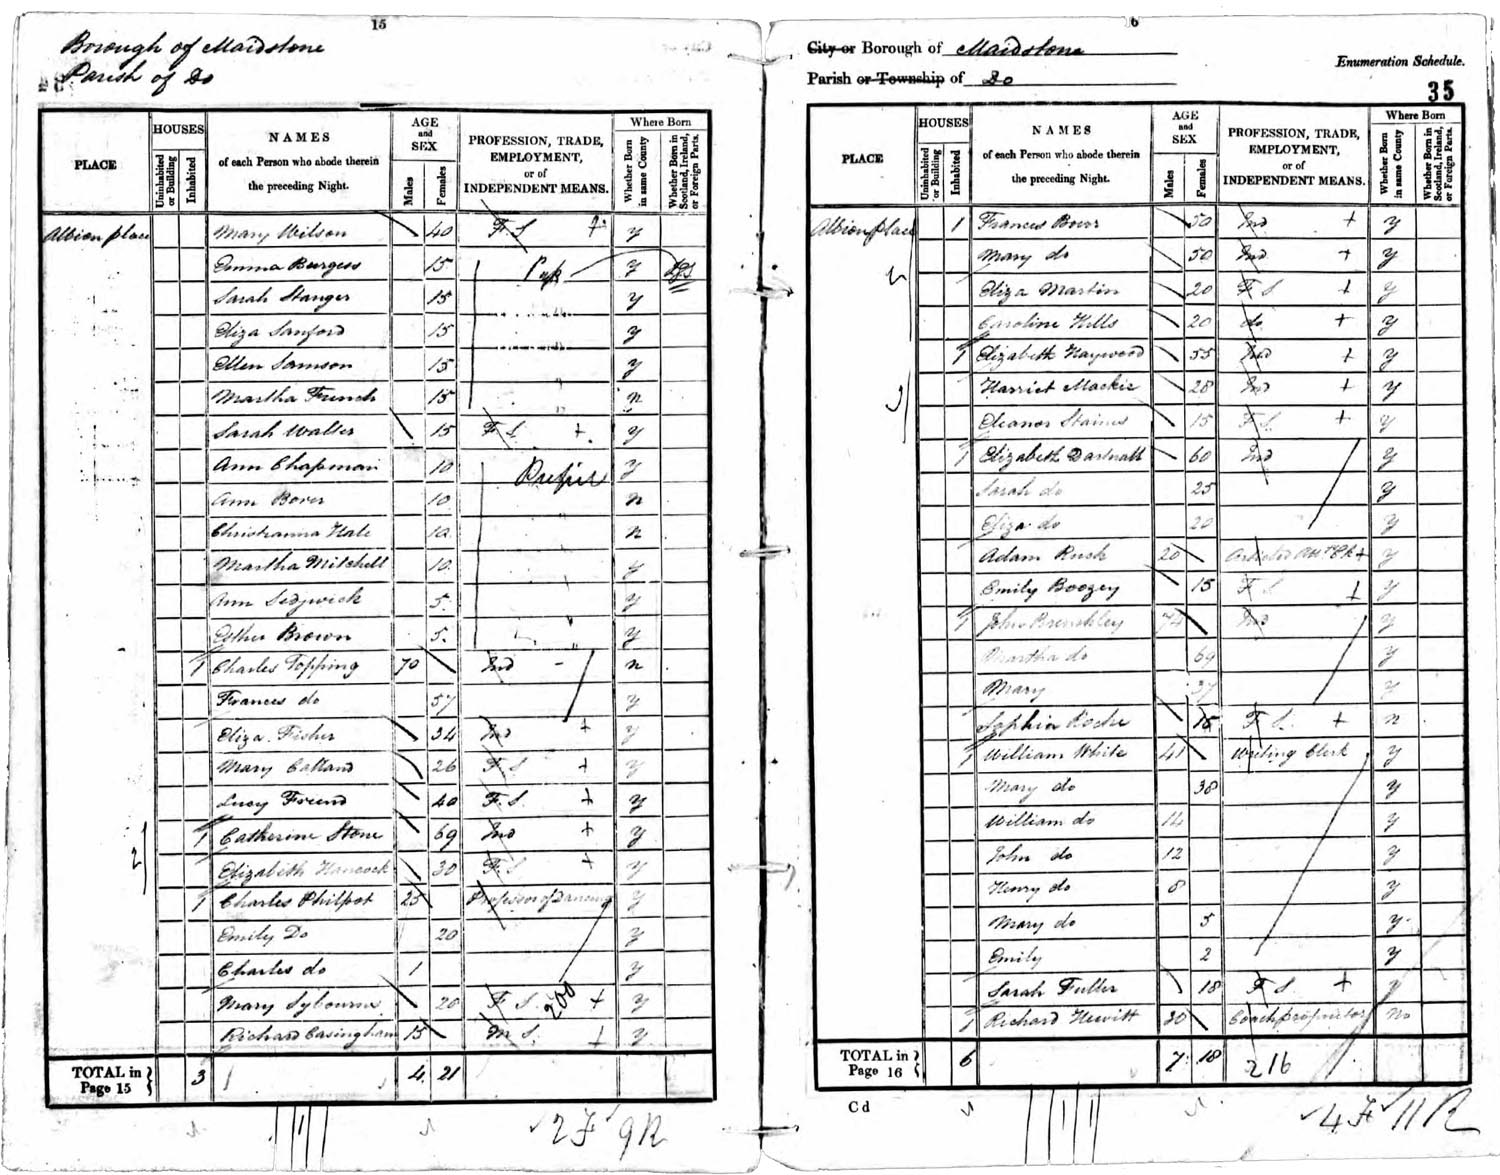 15
Borough of Maidstone
Parish of Do
PLACE
HOUSES
Uninhabited or Building
Inhabited
NAMES
of each Person who abode therein
the preceding Night.
AGE and SEX
Males
Females
PROFESSION, TRADE,
EMPLOYMENT,
or of
INDEPENDENT MEANS.
Where Born
Whether Born in same County
Whether Born in Scotland, Ireland, or Foreign Parts.
Albion place Mary Wilson 40 F.S. y
Emma Burgess 15 y
Sarah Stanger 15 y
Eliza Sanford 15 y
Ellen Samson 15 y
Martha French 15 n
Sarah Walter 15 F.S. y
Ann Chapman 10 y
Ann Bover 10 n
Christianna Hale 10 n
Martha Mitchell 10 y
Ann Sedgwick 5 y
Esther Brown 5 y
1 Charles Topping 70 Ind n
Frances do 57 y
Eliza Fisher 34 Ind y
Mary 26 F.S. y
Lucy Freend 40 F.S. y
1 Catherine Stone 69 Ind y
Elizabeth Hancock 30 F.S. y
1 Charles Philpot 25 Professor of Dancing y
Emily Do 20 y
Charles do 1 y
Mary 20 F.S. y
Richard Casingham 15 M.S. y
200
TOTAL in Page 15 3 4 21
2F 9R
6
City or Borough of Maidstone
Parish or Township of Do
Enumeration Schedule.
35
PLACE
HOUSES
Uninhabited or Building
Inhabited
NAMES
of each Person who abode therein
the preceding Night.
AGE and SEX
Males
Females
PROFESSION, TRADE,
EMPLOYMENT,
or of
INDEPENDENT MEANS.
Where Born
Whether Born in same County
Whether Born in Scotland, Ireland, or Foreign Parts.
Albion place 1 Frances Bover 50 Ind y
Mary do 50 Ind y
Eliza Martin 20 F.S. y
Caroline Hills 20 do y
1 Elizabeth Haywood 55 Ind y
Harriet Mackie 28 Ind y
Eleanor Staines 15 F.S. y
1 Elizabeth Dartnall 60 Ind y
Sarah do 25 y
Eliza do 20 y
Adam Rush 20 y
Emily Boozey 15 F.S. y
1 John Brenchley 74 Ind y
Martha do 69 y
Mary 37 y
Sophia Roche F.S. n
1 William White 41 Writing Clerk y
Mary do 38 y
William do 14 y
John do 12 y
Henry do 8 y
Mary do 5 y
Emily 2 y
Sarah Fuller 18 F.S. y
1 Richard Hewitt 30 Coach proprietor No
TOTAL in Page 16 6 7 18
216
C d
4F 11R